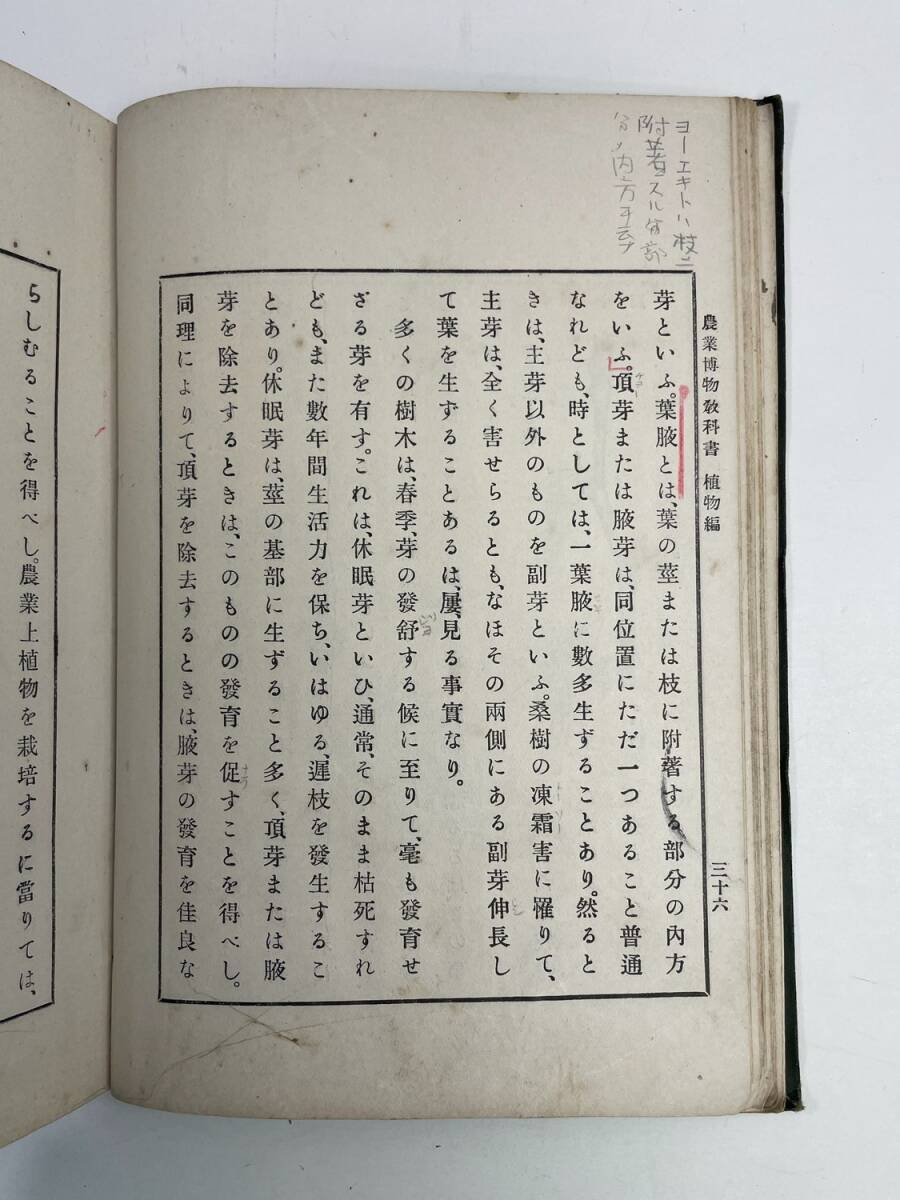 ヨーエキトハ枝ニ
附著スル分部
分ノ内方ヲ云フ
農業博物敎科書 植物編
三十六
芽といふ。葉腋とは、葉の莖または枝に附著する部分の內方
をいふ。頂芽または腋芽は、同位置にただ一つあること普通
なれども、時としては、一葉腋に數多生ずることあり。然ると
きは、主芽以外のものを副芽といふ。桑樹の凍霜害に罹りて、
主芽は、全く害せらるとも、なほその兩側にある副芽伸長し
て葉を生ずることあるは、屢、見る事實なり。
多くの樹木は、春季、芽の發舒する候に至りて、毫も發育せ
ざる芽を有す。これは、休眠芽といひ、通常、そのまま枯死すれ
ども、また數年間生活力を保ち、いはゆる、遲枝を發生するこ
とあり。休眠芽は、莖の基部に生ずること多く、頂芽または腋
芽を除去するときは、このものの發育を促すことを得べし。
同理によりて、頂芽を除去するときは、腋芽の發育を佳良な
らしむることを得べし。農業上植物を栽培するに當りては、